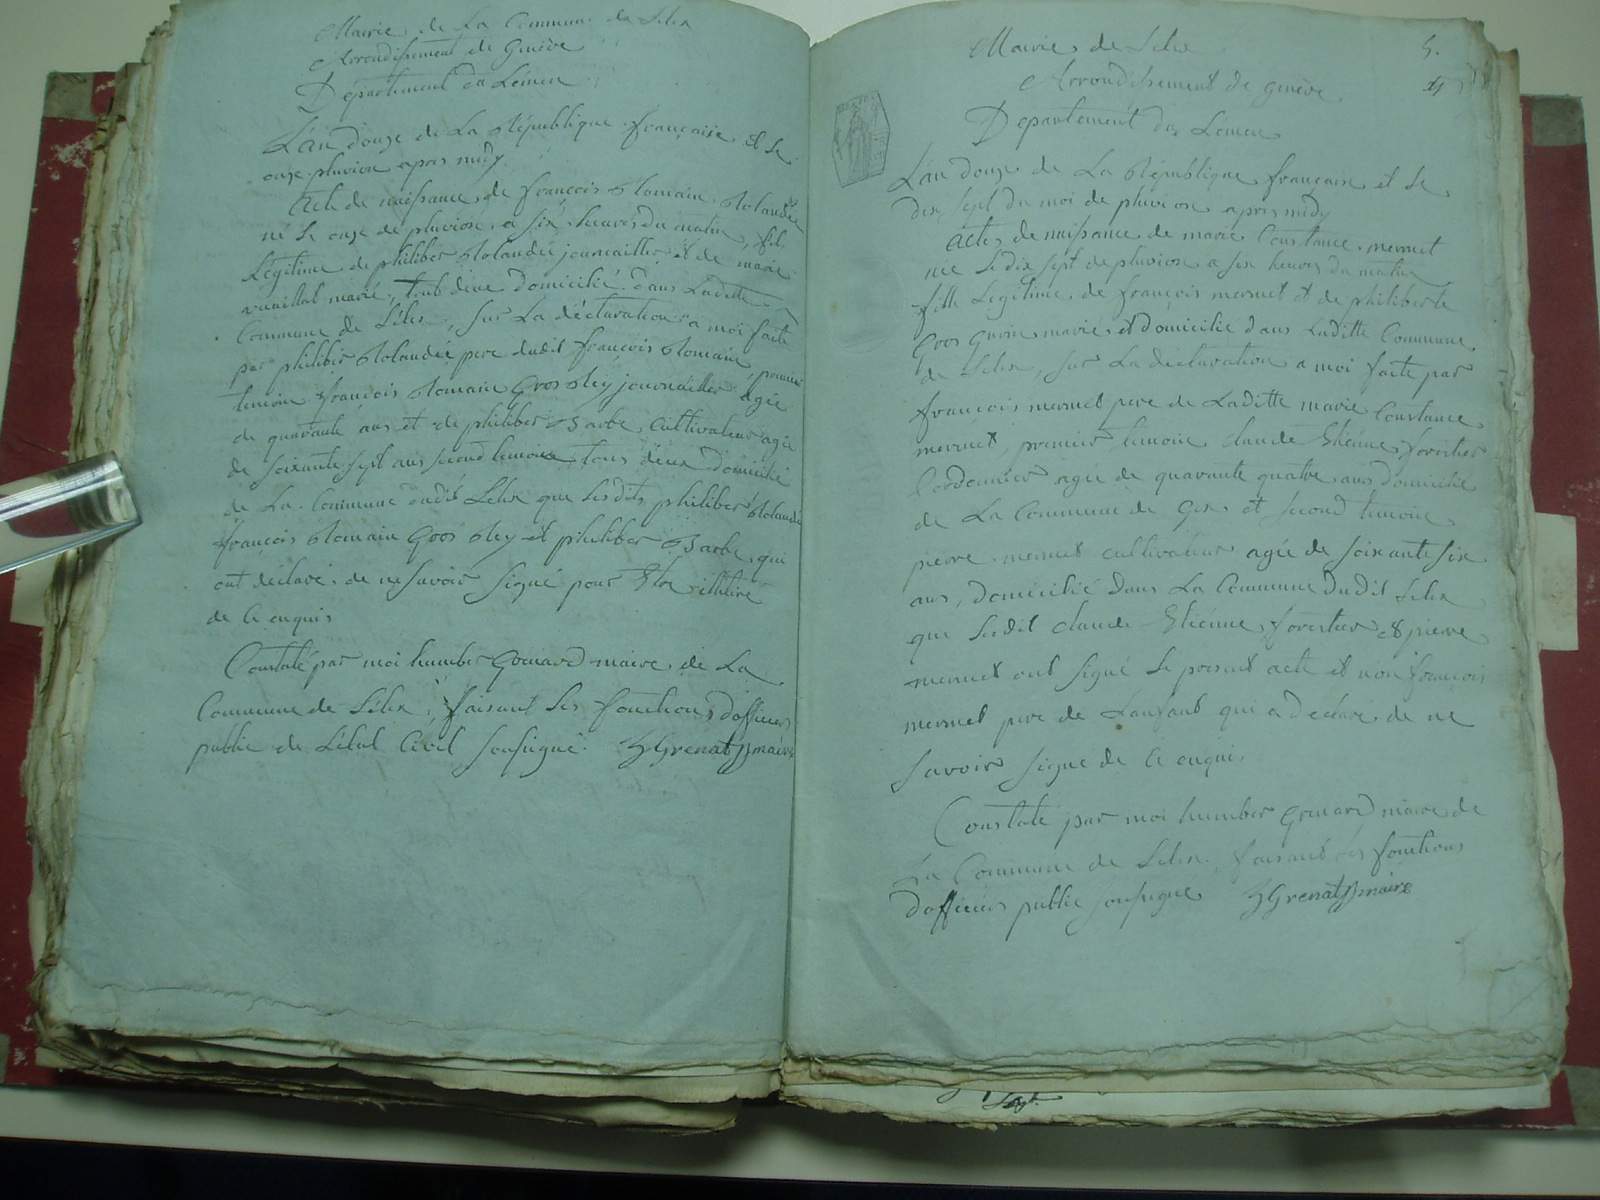 Mairie de La Commune de Lélex
Arrondissement de Genève
Département du Léman
L'an douze de La République française et le
onze pluviose apres midy
Acte de naissance de françois Romain Rolandée
né le onze de pluviose a six heures du matin, fils
Légitime de philiber Rolandée journaillier et de marie
marié, tous deux domicilié dans Laditte
Commune de Lélex, sur La déclaration a moi faite
par philiber Rolandée pere dudit françois Romain, premier
temoin françois Romain Gros Rey journaillier agée
de quarante ans et de philiber Barbe, Cultivateur agée
de soixante sept ans second temoins, tous deux domicilié
de La Commune dudit Lélex que lesdits philiber Rolandée
françois Romain Gros Rey et philiber Barbe, qui
ont déclaré de ne savoir signé pour Etre illitéré
de ce enquis
Constaté par moi humber Grenard maire de La
Commune de Lélex, faisant les fonctions d'officier
public de L'état Civil soussigné. HGrenard maire
Mairie de Lélex
5.
Arrondissement de genève
Département du Léman
L'an douze de La République française et le
dix sept du moi de pluviose apres midy
Actes de naissance de marie Constance mermet
née le dix sept de pluviose a six heures du matin
fille Legitime de françois mermet et de philiberte
Gros Gurin mariés et domicilié dans Laditte Commune
de Lélex, sur La déclaration a moi faite par
françois mermet pere de Laditte marie Constance
mermet, premier temoin claude Etiénne forestier
Cordonnier agée de quarante quatre ans domicilié
de La Commune de Gex et second temoin
pierre mermet cultivateur agée de soixante six
ans, domicilié dans La Commune dudit Lélex
que Ledit claude Etiénne forestier et pierre
mermet ont signé le present acte et non françois
mermet pere de Lanfant qui a declaré de ne
savoir signé de ce enquis
Constaté par moi humber Grenard maire de
La Commune de Lélex, faisant les fonctions
d'officier public soussigné HGrenard maire